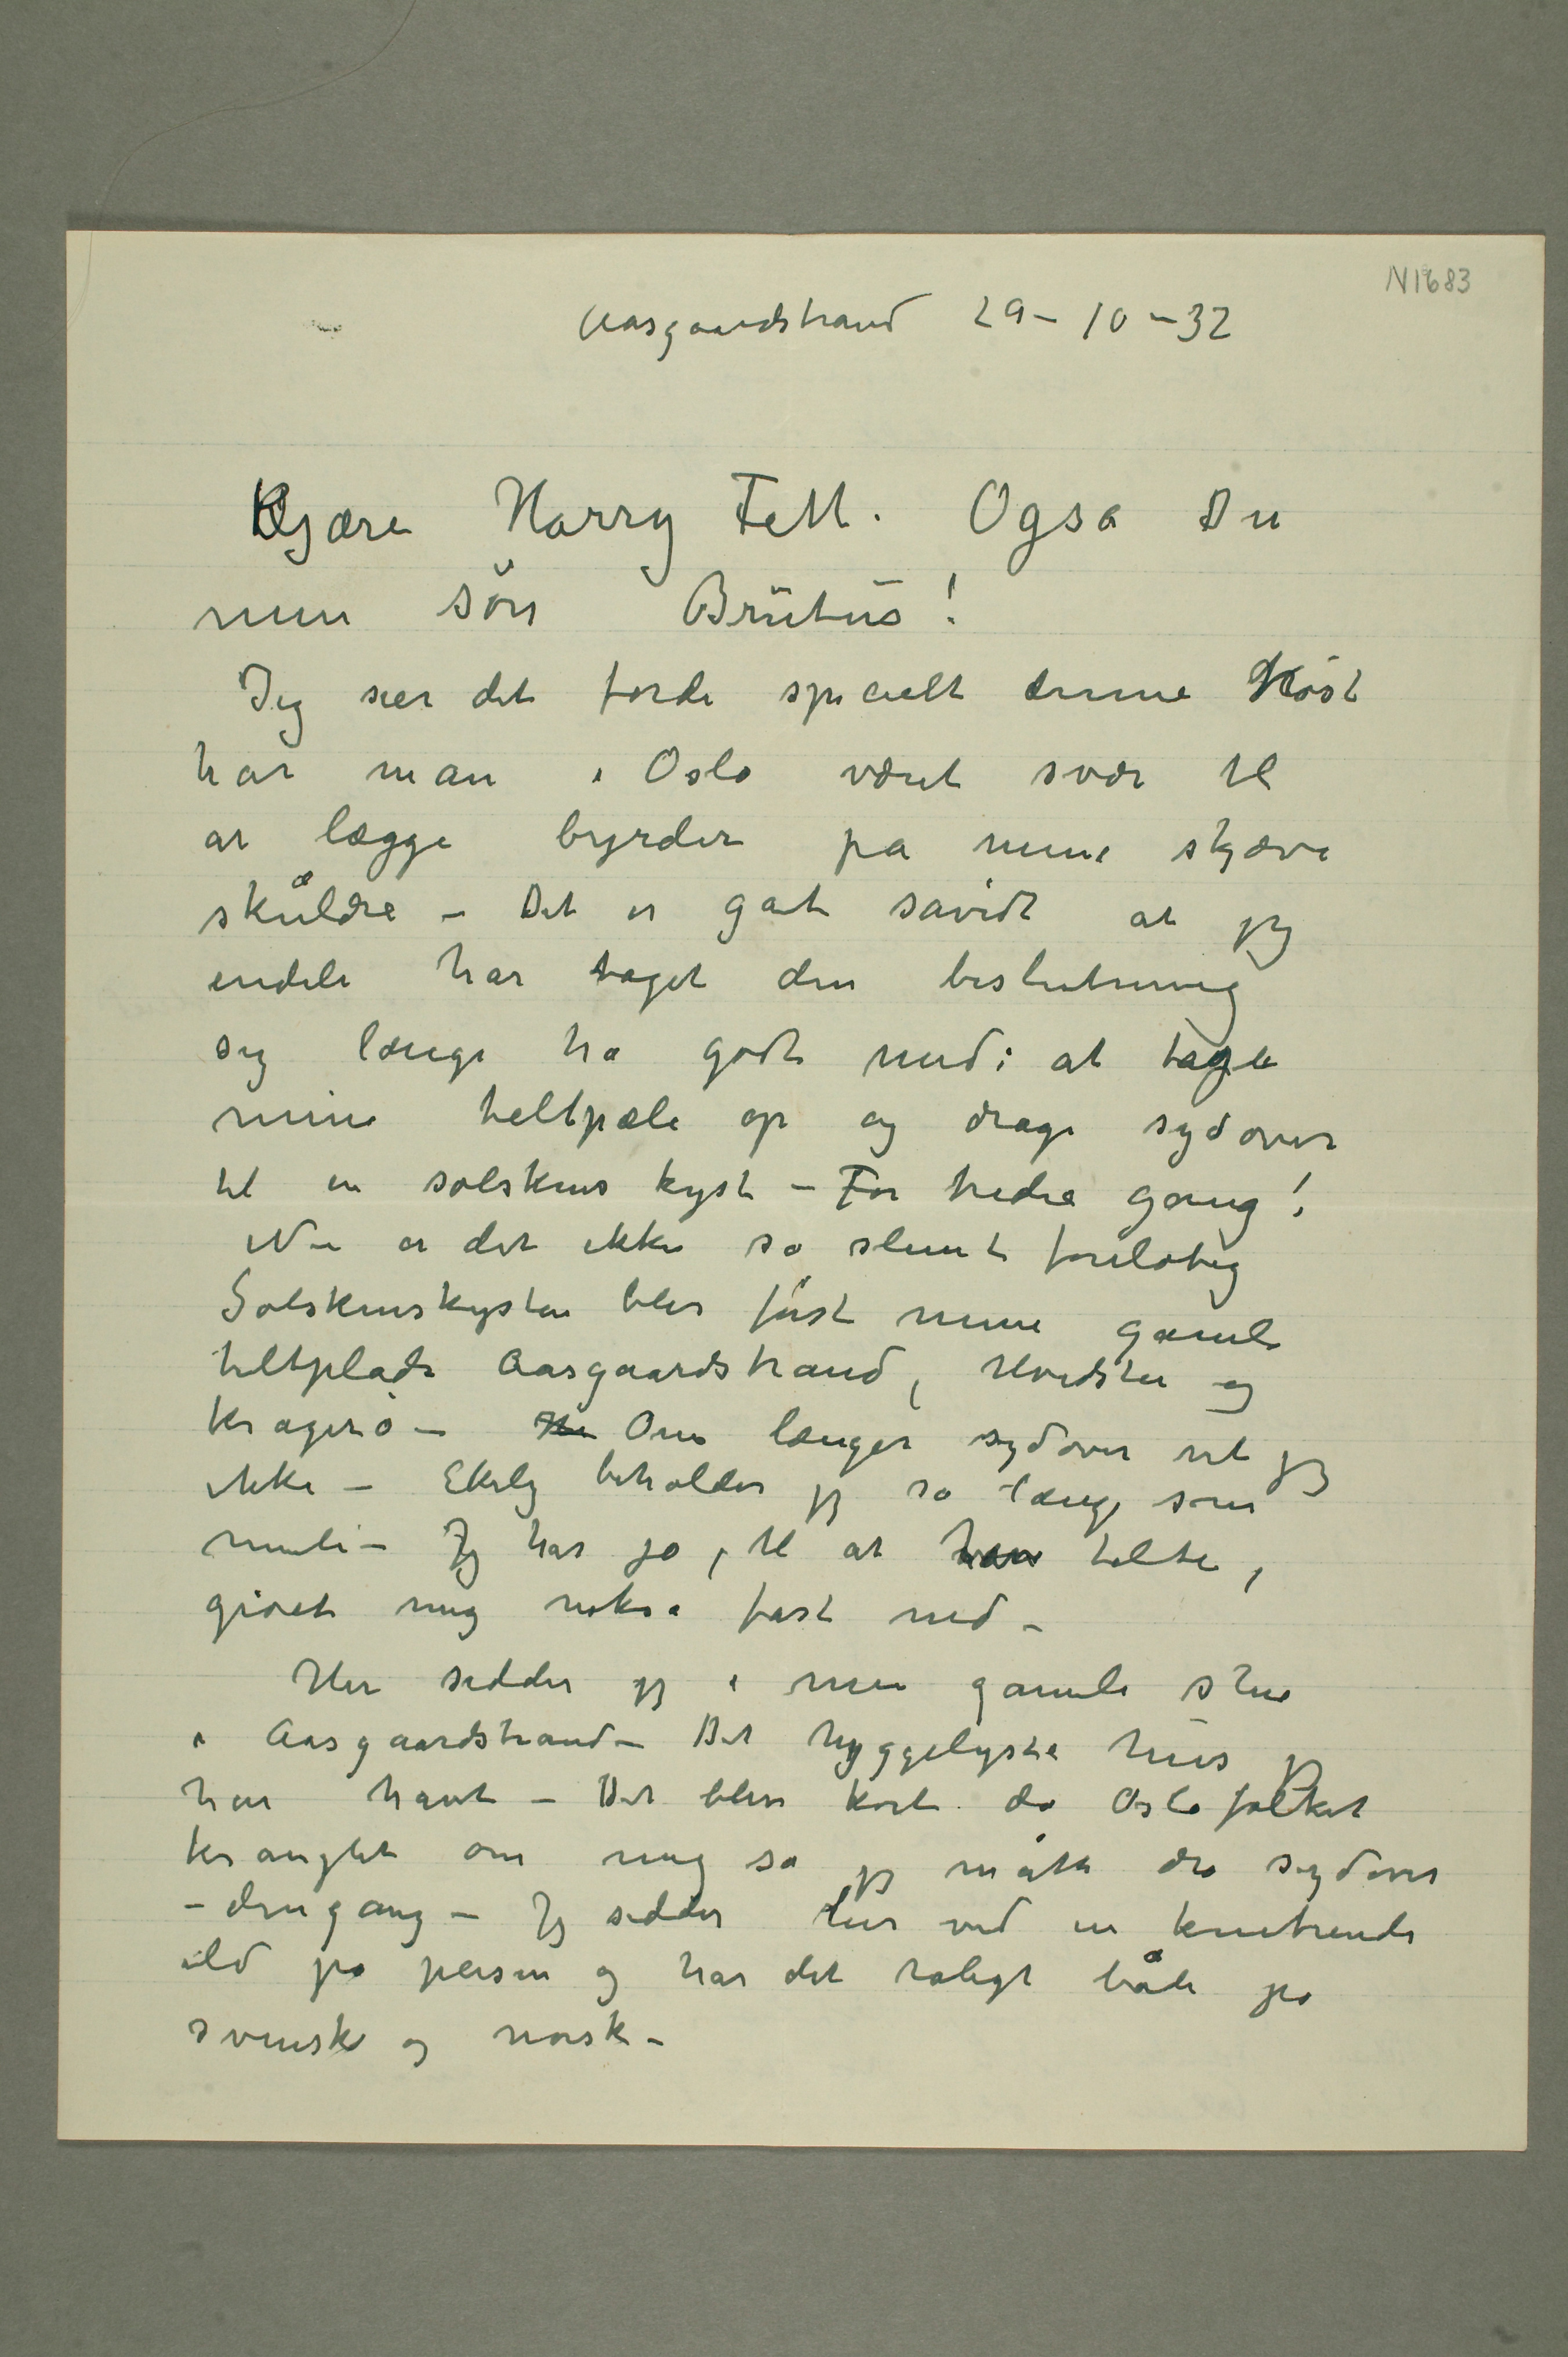 N1683
Aasgaardstrand 29 – 10 – 32
Kjære Harry Fett. Også Du
min sön Brutus!
Jeg sier det fordi specielt denne Høst
har man i Oslo været svær til
at lægge byrder på mine skjæve
skuldre – Det er gåt såvidt at jeg
endeli har taget den beslutning
jeg længe ha gåt med: at tage
mine teltpæle op og drage sydover
til en solskins kyst – For tredie gang!
Nu er det ikke så slemt foreløbig
Solskinskysten blir først mine gamle
teltplads Aasgaardstrand, Hvidsten og
Kragerø – Om længer sydover vet jeg
ikke – Ekely beholder jeg så længe som
muli – Jeg har jo, til at telte,
gjort mig nokså fast ned –
Her sidder jeg i min gamle stue
i Aasgaardstrand – Det hyggeligste hus jeg
har havt – Det blev kort da Oslofolket
kranglet om mig så jeg måtte dra sydover
– dengang – Jeg sidder her ved en knitrende
ild på peisen og har det roligt både på
svensk og norsk –